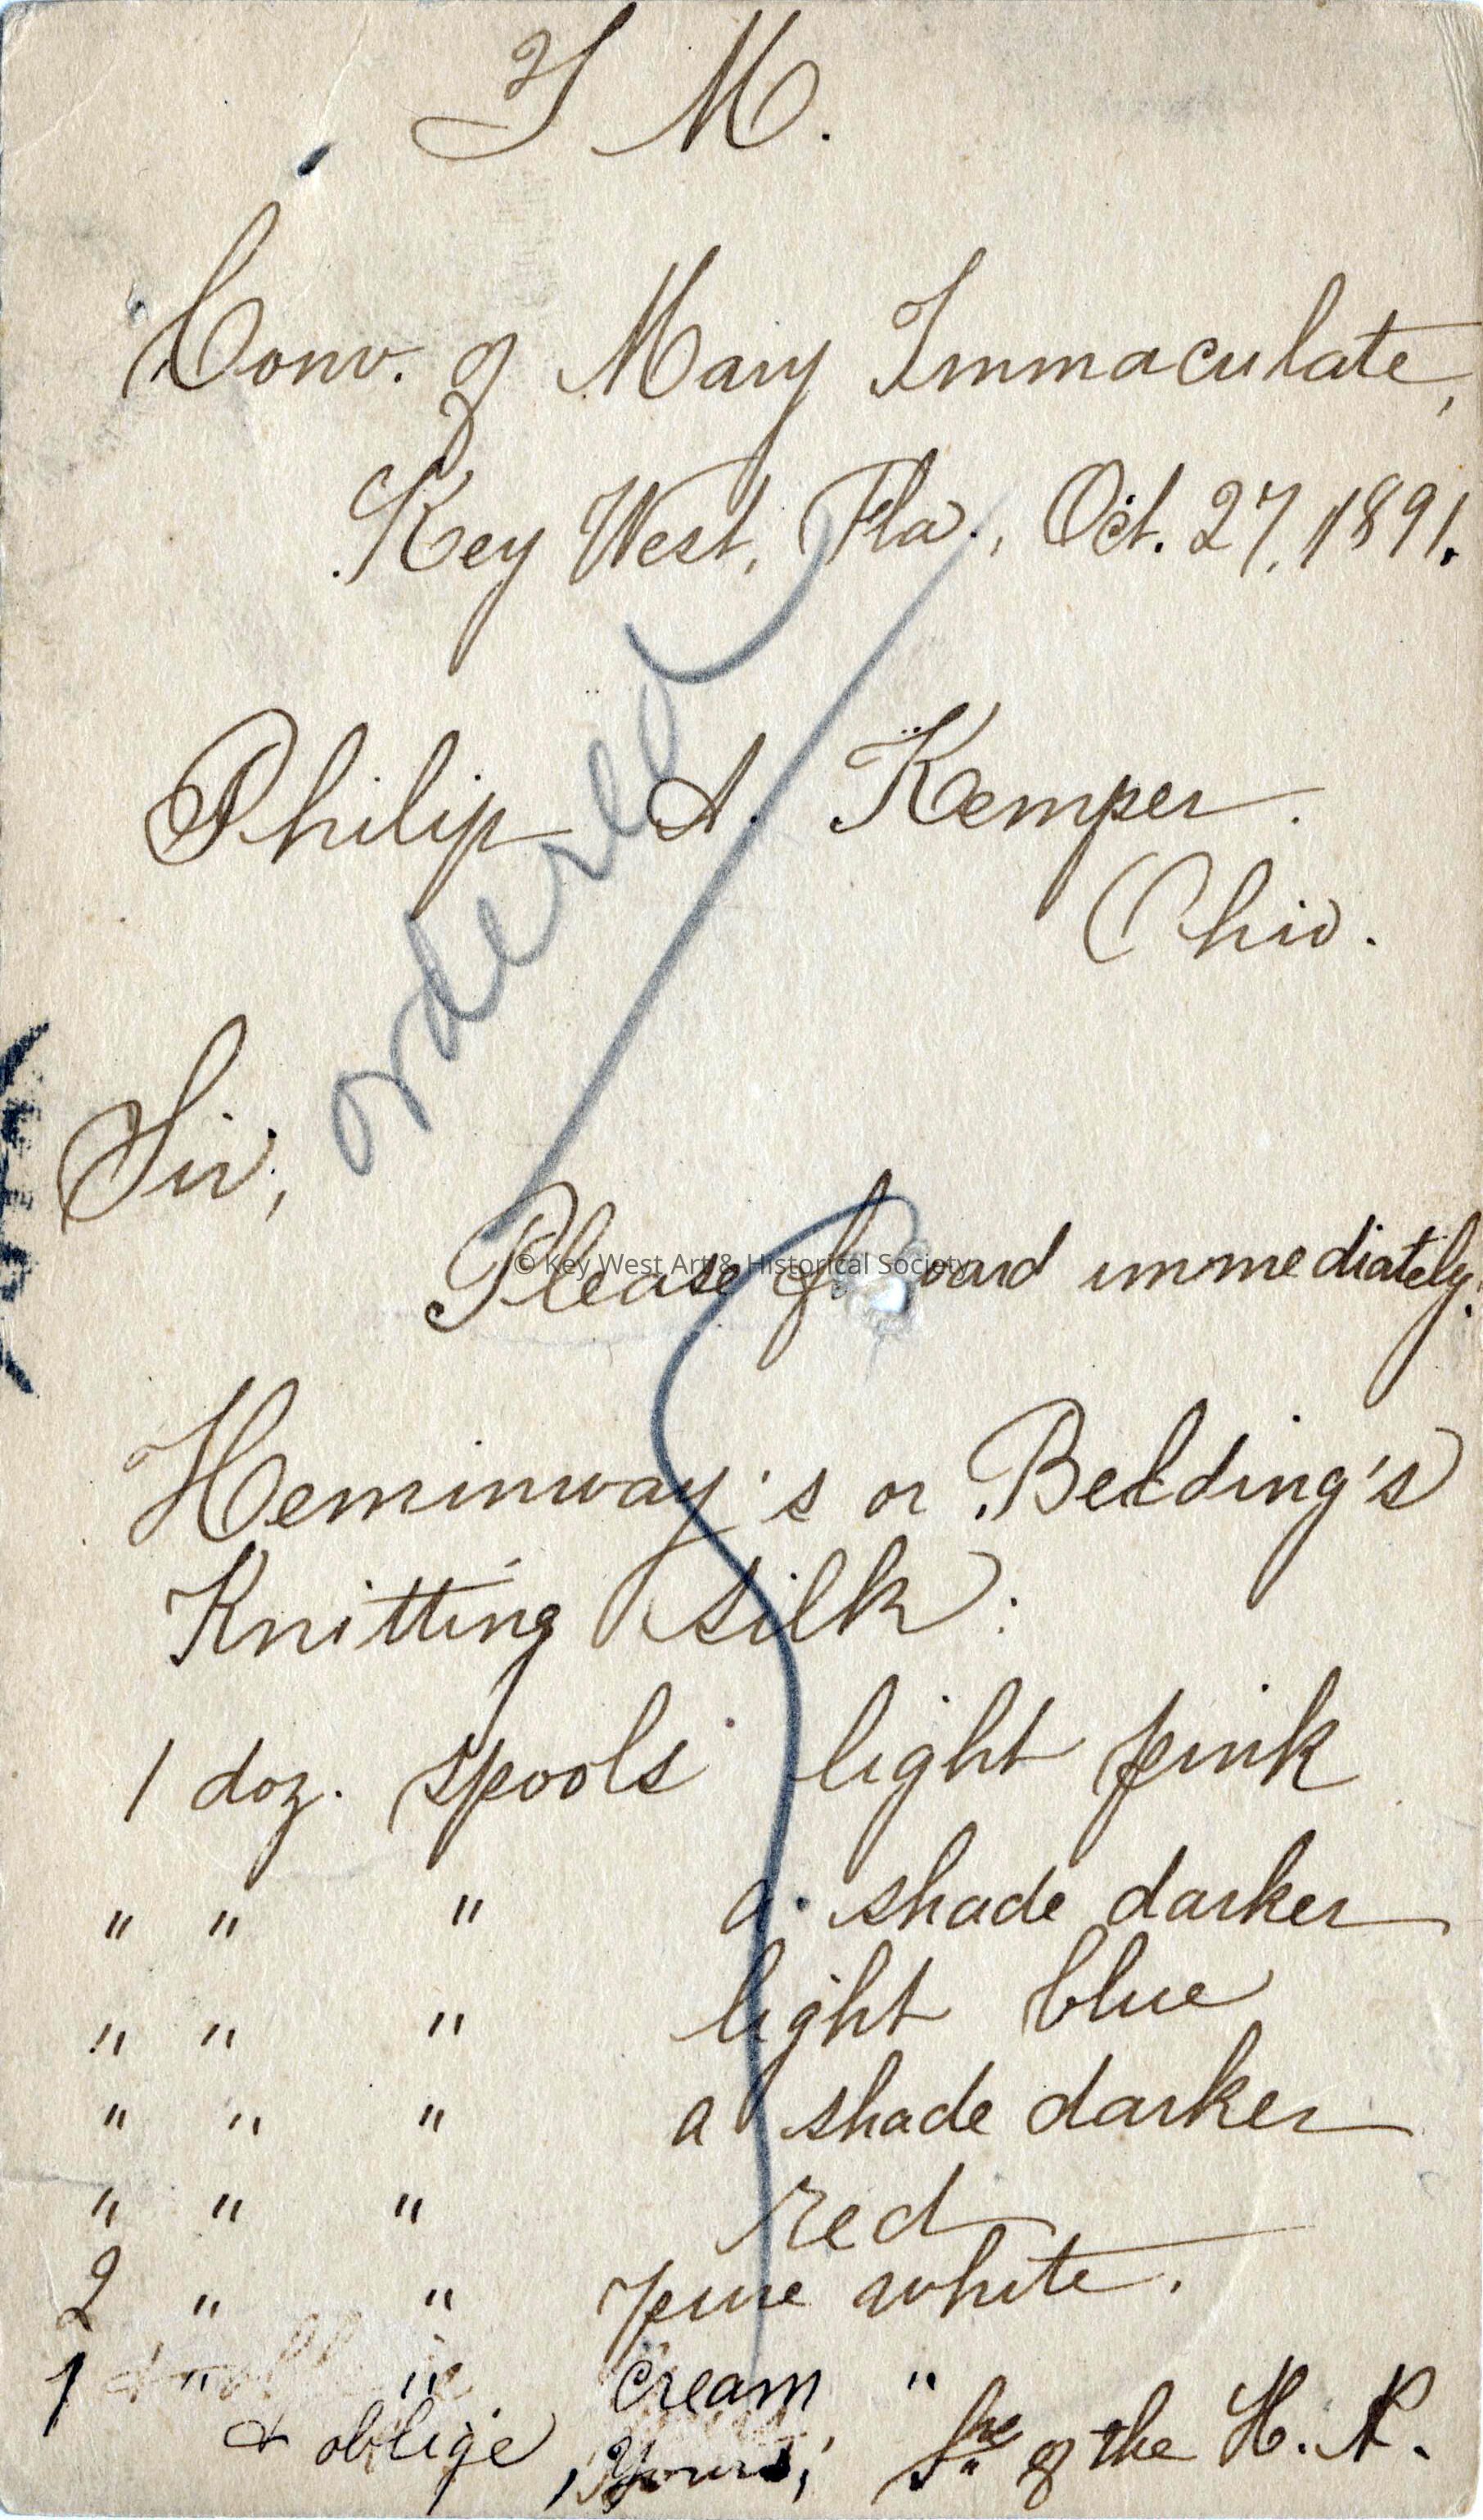 J M.
Conv. of Mary Immaculate,
Key West, Fla., Oct. 27, 1891.
Philip A. Kemper.
Ohio.
ordered
Sir,
Please forward immediately.
© Key West Art & Historical Society
Heminway's or Belding's
Knitting silk:
1 doz. spools light pink
" " " a shade darker
" " " light blue
" " " a shade darker
" " " red
2 " " pure white.
1 " " cream "
& oblige, Yours, of the H. N.